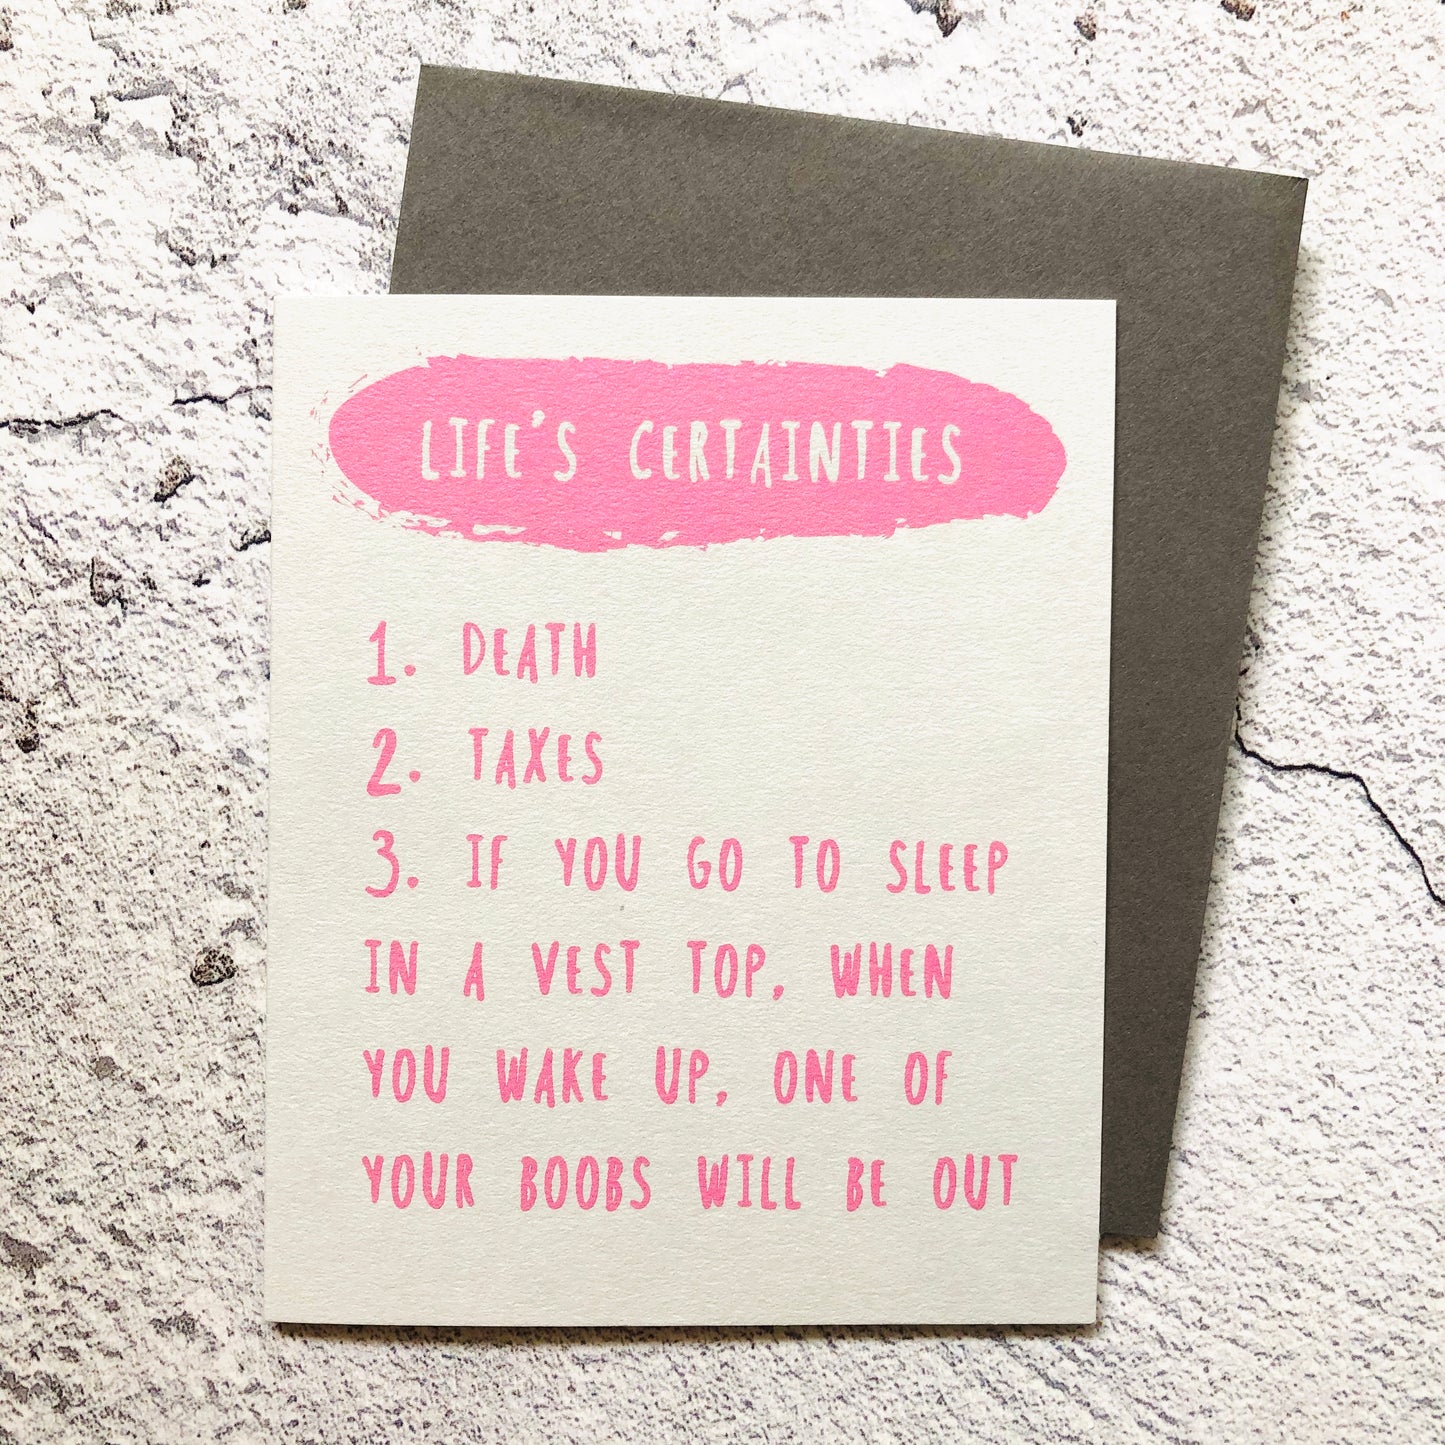 LIFE'S CERTAINTIES
1. DEATH
2. TAXES
3. IF YOU GO TO SLEEP
IN A VEST TOP, WHEN
YOU WAKE UP, ONE OF
YOUR BOOBS WILL BE OUT